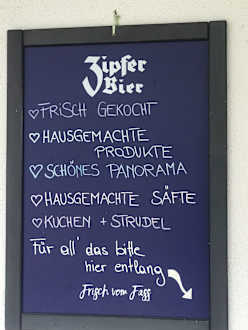 Zipfer
Bier
♡ FRISCH GEKOCHT
♡ HAUSGEMACHTE
PRODUKTE
♡ SCHÖNES PANORAMA
♡ HAUSGEMACHTE SÄFTE
♡ KUCHEN + STRUDEL
Für all' das bitte
hier entlang
Frisch vom Fass